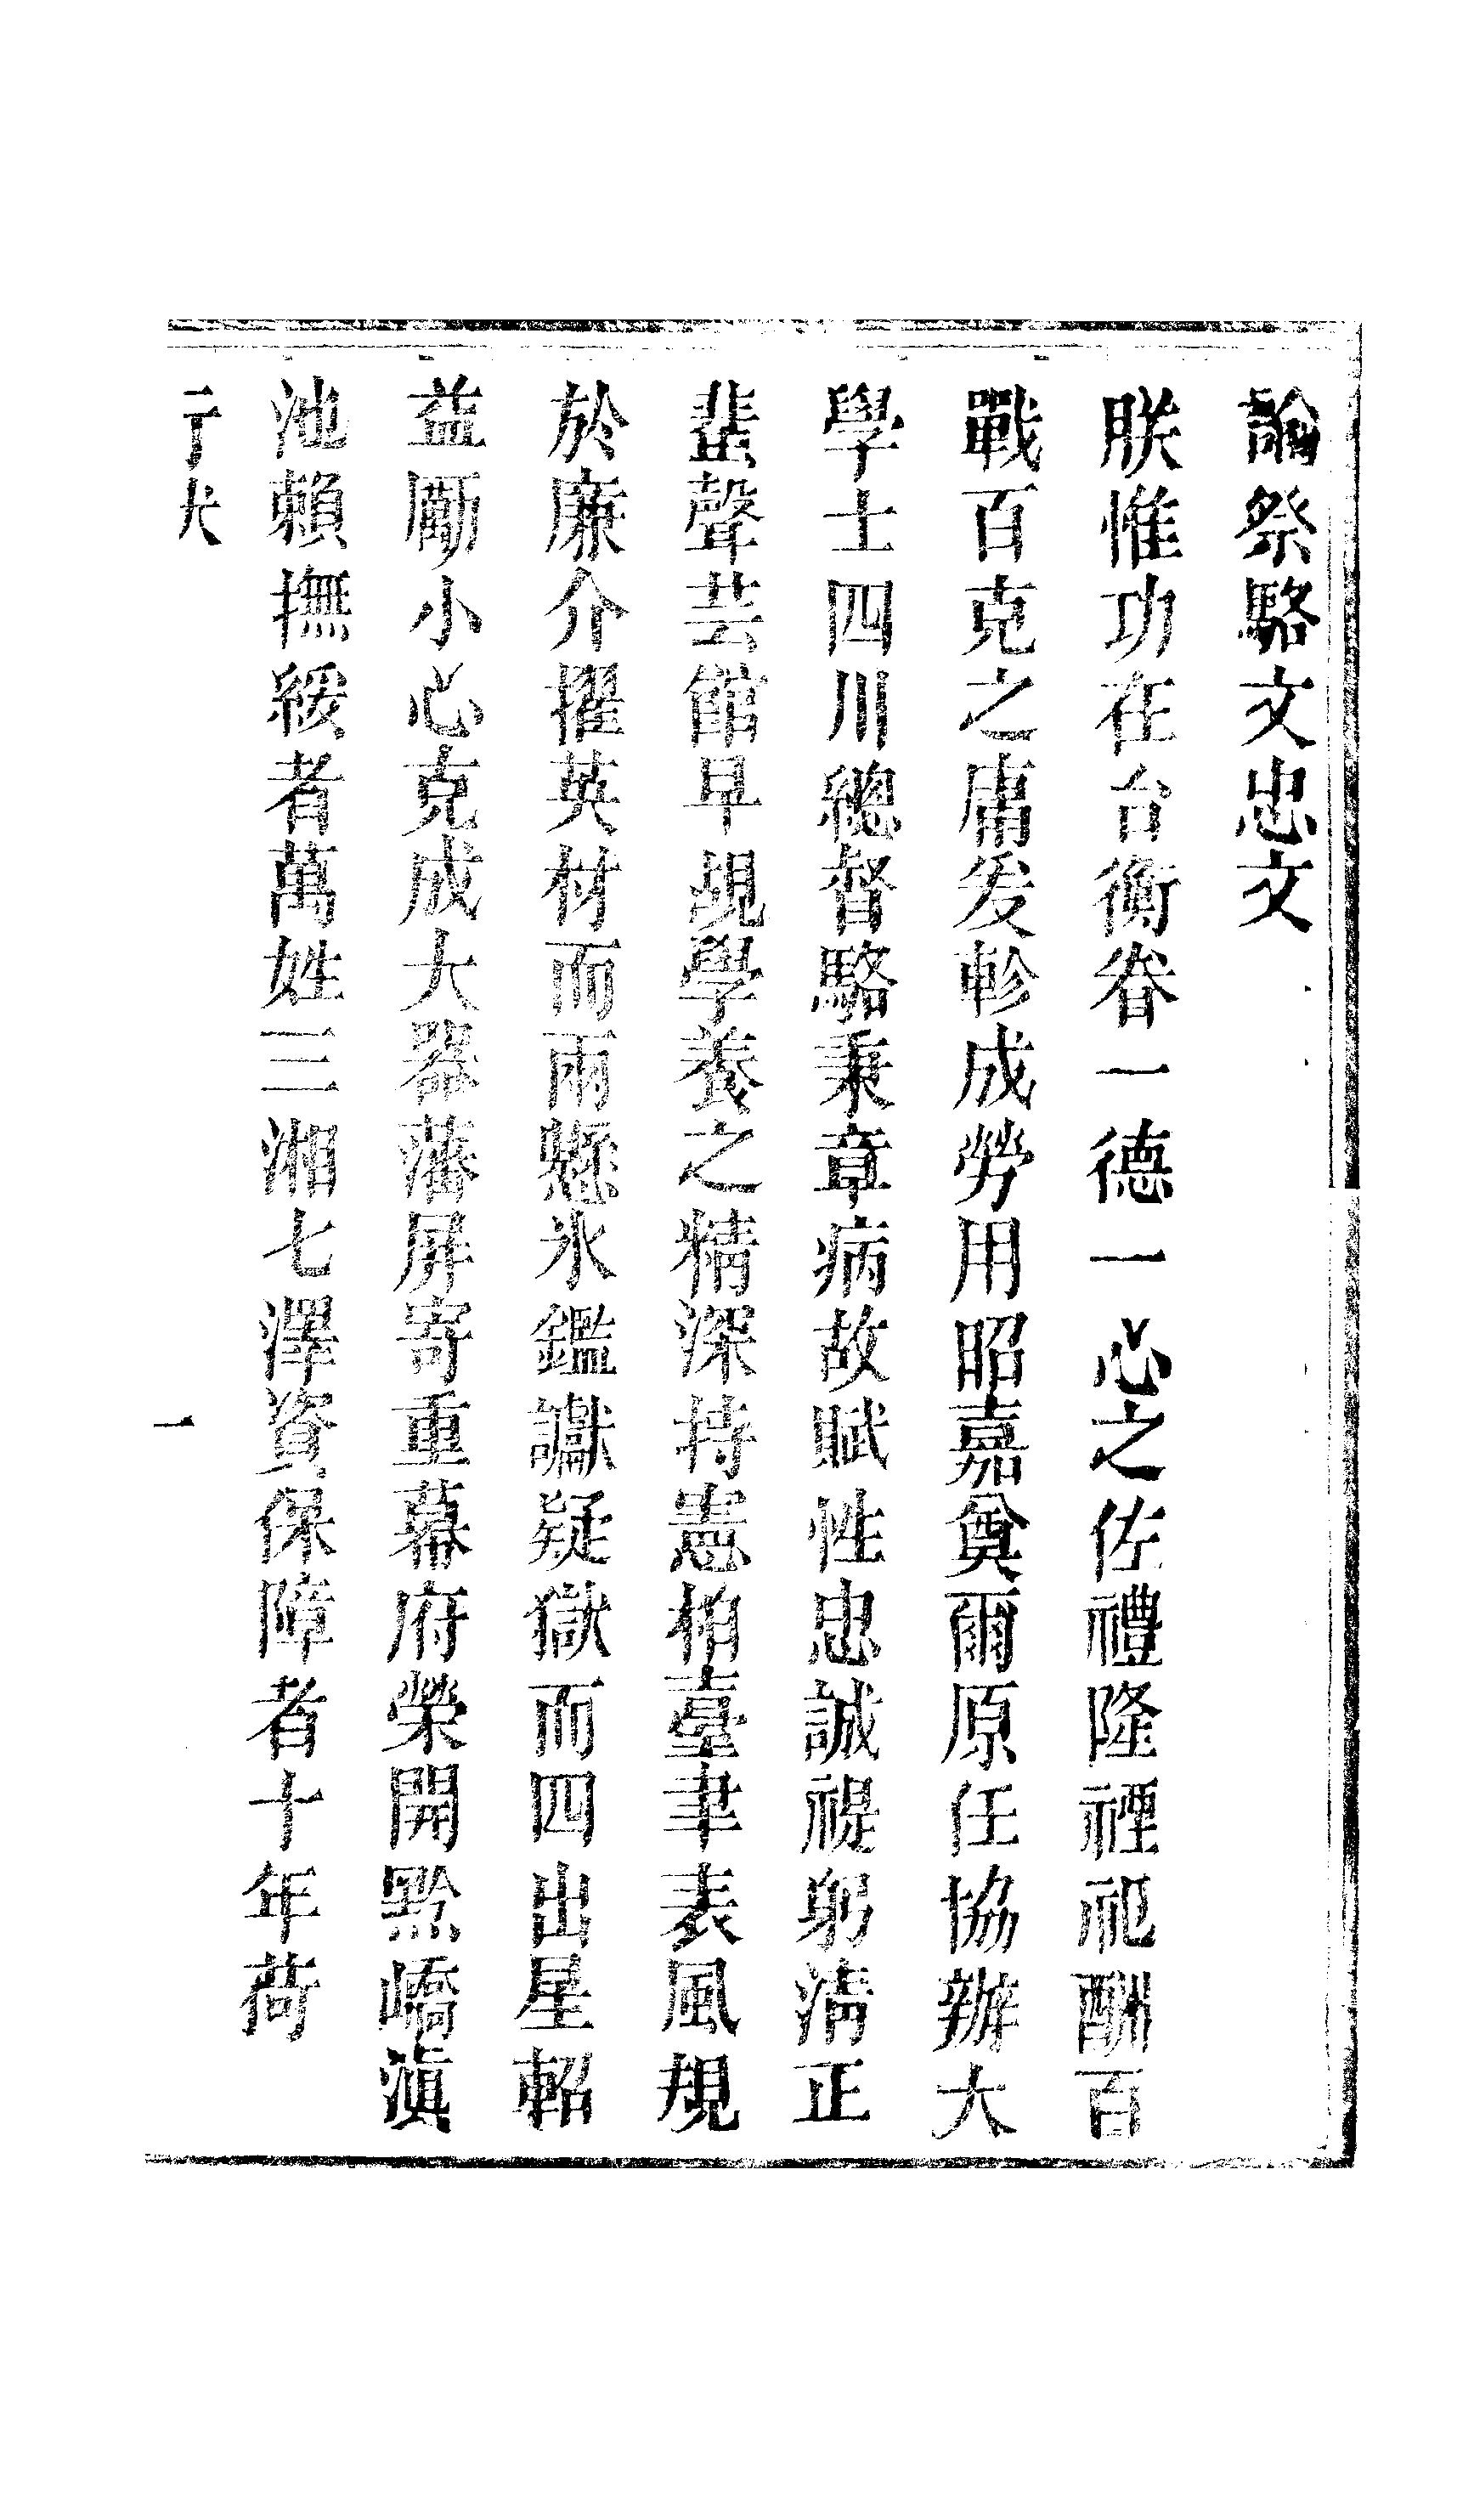 諭祭駱文忠文
朕惟功在台衡眷一德一心之佐禮隆禋祀酬百
戰百克之庸爰軫成勞用昭嘉奠爾原任協辦大
學士四川總督駱秉章病故賦性忠誠禔躬淸正
蜚聲芸館早覘學養之精深持憲柏臺聿表風規
於廉介擢英材而雨懸氷鑑讞疑獄而四出星軺
益勵小心克成大器藩屏寄重幕府榮開黔嶠滇
池賴撫綏者萬姓三湘七澤資保障者十年荷
一